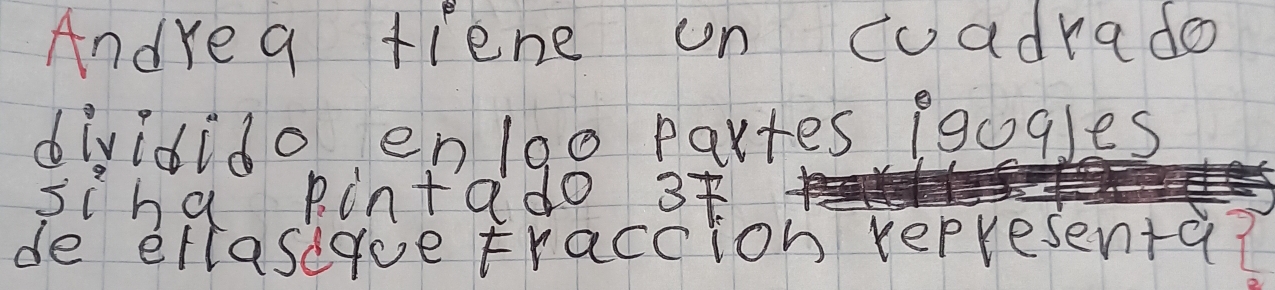 Andrea tiene un cuadrado
dividido en 100 partes iguales
si ha pintado 37
de ellas ¿que Fraccion representa?